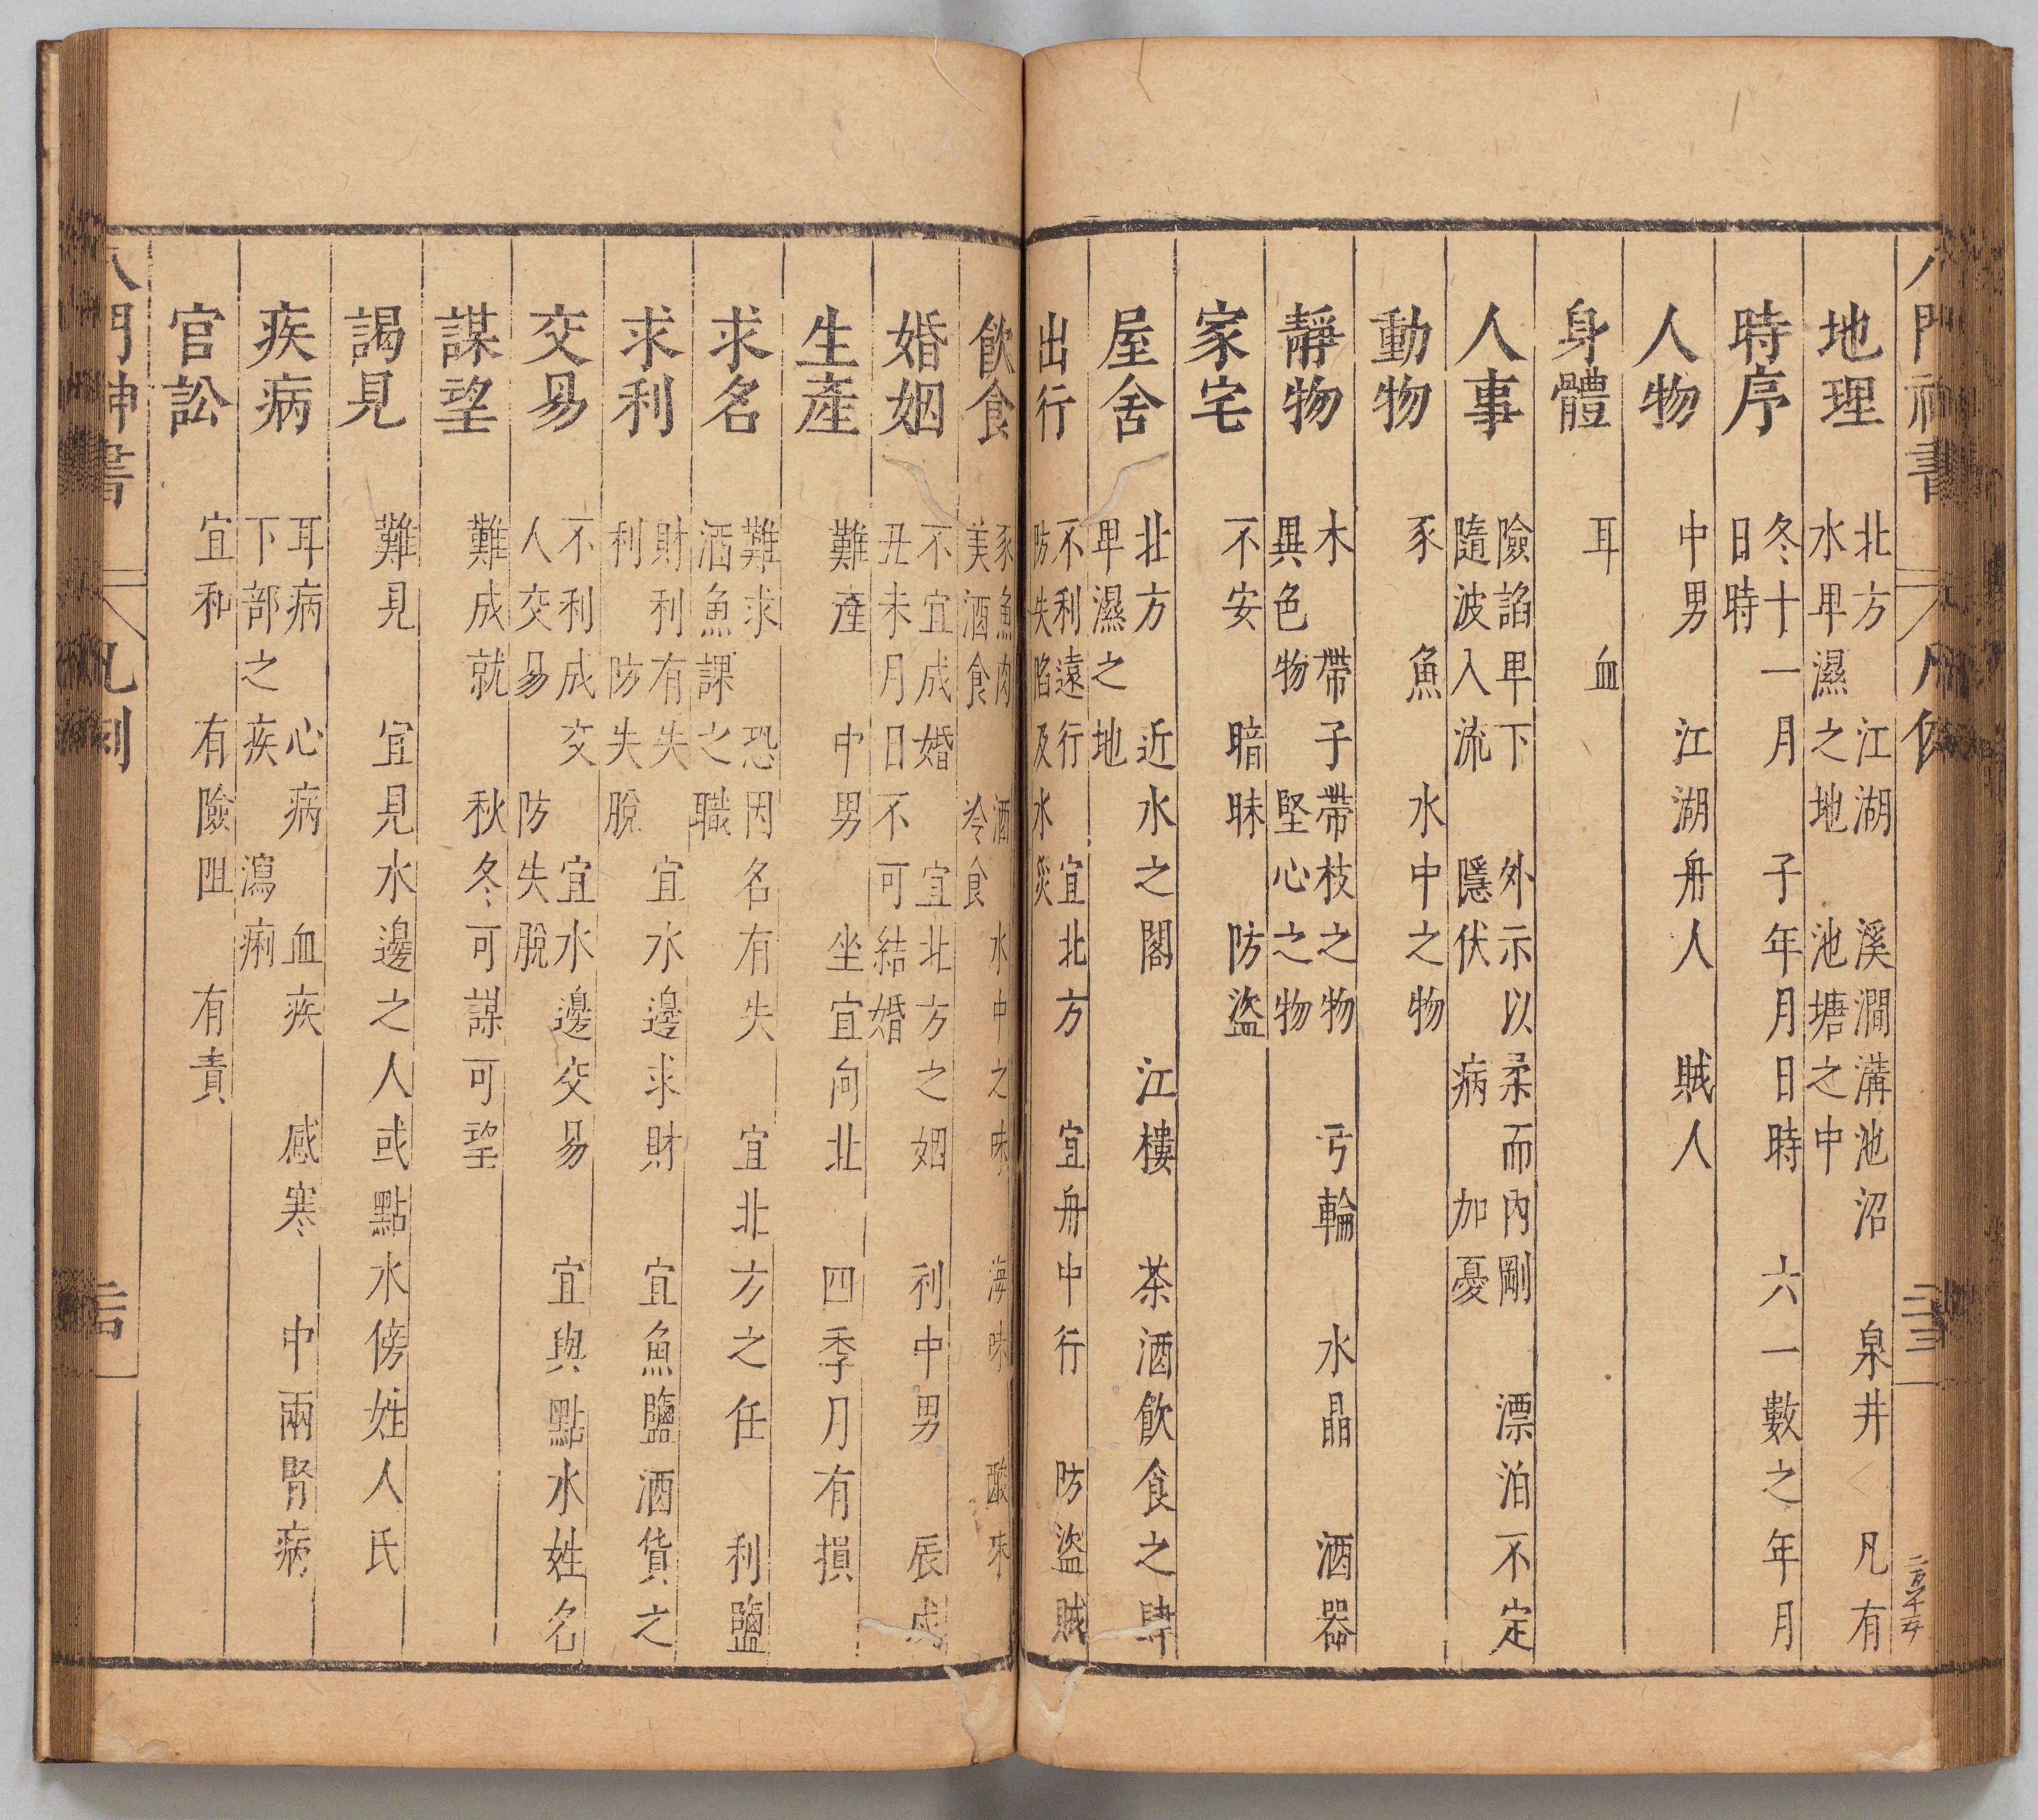 地理 北方 江湖 溪澗溝池沼 泉井 凡有
水卑濕之地 池塘之中
時序 冬十一月 子年月日時 六一數之年月
日時
人物 中男 江湖舟人 賊人
身體 耳 血
人事 險諂卑下 外示以柔而內剛 漂泊不定
隨波入流 隱伏 病 加憂
動物 豕 魚 水中之物
靜物 木 帶子帶枝之物 弓輪 水晶 酒器
異色物 堅心之物
家宅 不安 暗昧 防盜
屋舍 北方 近水之閣 江樓 茶酒飲食之肆
卑濕之地
出行 不利遠行 宜北方 宜舟中行 防盜賊
防失陷及水災
飲食 豕魚肉 酒 水中之味 海味 酸味
美酒食 冷食
婚姻 不宜成婚 宜北方之姻 利中男 辰戌
丑未月日不可結婚
生產 難產 中男 坐宜向北 四季月有損
求名 難求 恐因名有失 宜北方之任 利鹽
酒魚課之職
求利 財利有失 宜水邊求財 宜魚鹽酒貨之
利 防失脫
交易 不利成交 宜水邊交易 宜與點水姓名
人交易 防失脫
謀望 難成就 秋冬可謀可望
謁見 難見 宜見水邊之人或點水傍姓人氏
疾病 耳病 心病 血疾 感寒 中兩腎病
下部之疾 瀉痢
官訟 宜和 有險阻 有責